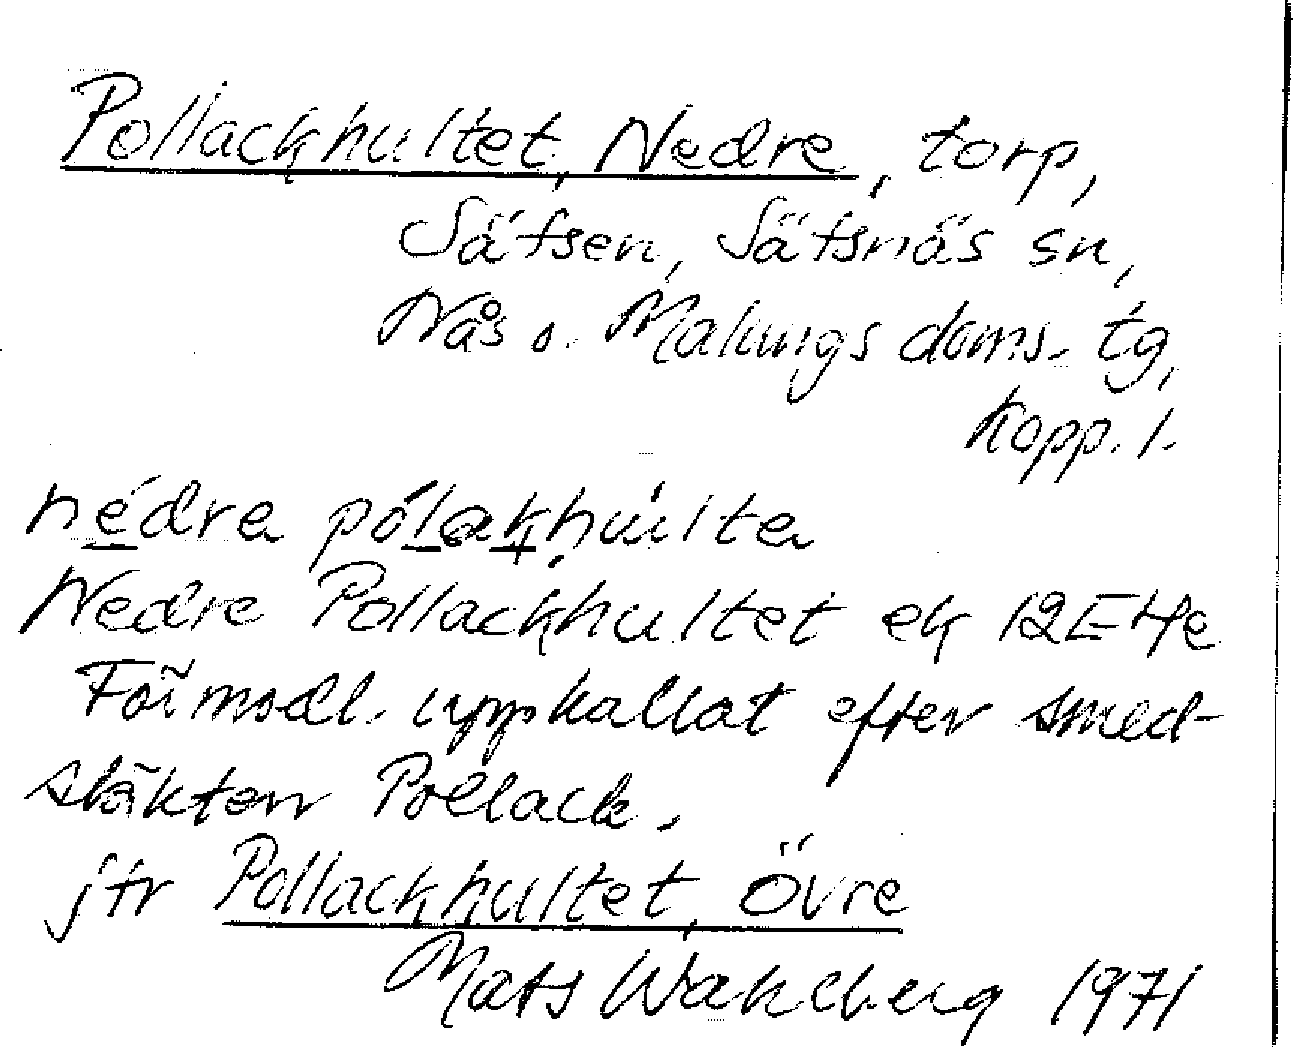 Pollackhultet, Nedre, torp,
Säfsen, Säfsnäs sn,
Nås o. Malungs doms. tg,
Kopp. l.
nédra pólakhùlta
Nedre Pollackhultet ek 12E4e
Förmodl. uppkallat efter smed-
släkten Pollack.
jfr Pollackhultet, Övre
Mats Wahlberg 1971